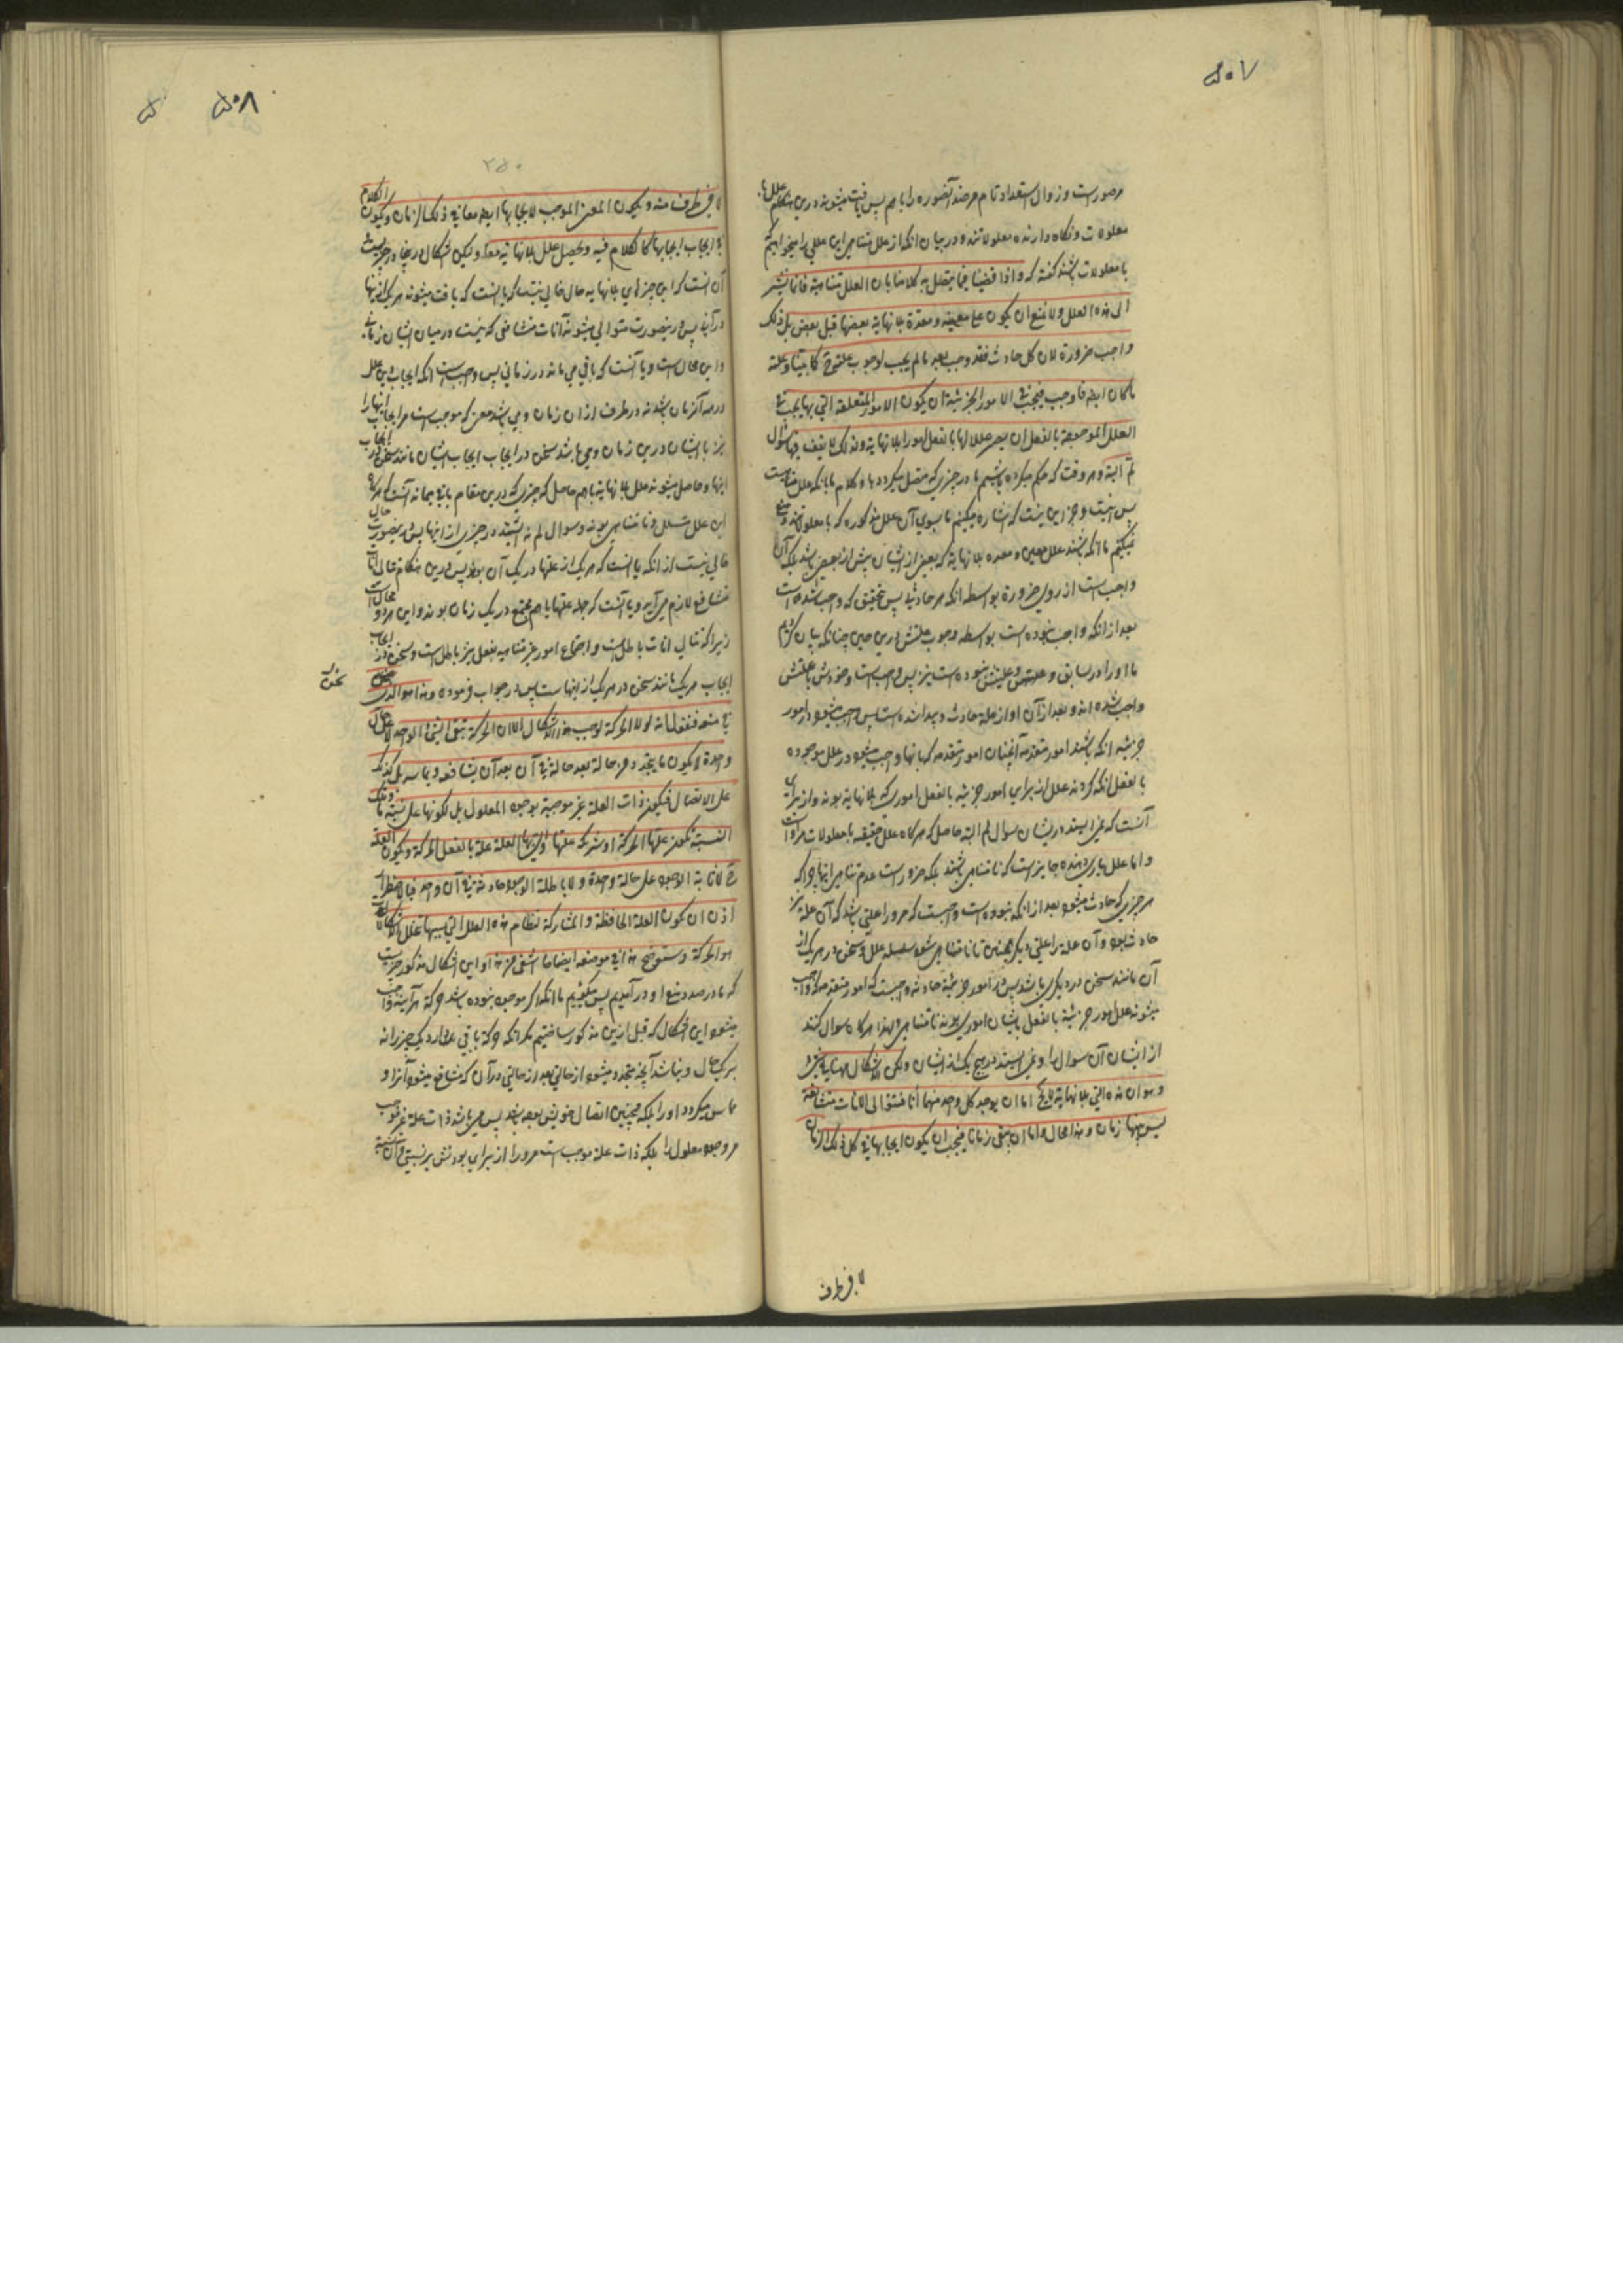 ۵۰۷
مر صورتست و زوال استعداد تام مر ضد آنصوره را باهم پس یافت میشوند درین هنگام علل با
معلولات و نگاه دارنده معلولاتند و در بیان انکه از علل متناهی این عللی را میخواهیم که
با معلولات باشند گفته که و اذا قضینا فیما یتصل به کلامنا بان العلل متناهیة فانما نشیر
الی هذه العلل و لا نمنع ان یکون علل معینة و معدة بلا نهایة بعضها قبل بعض بل ذلک
واجب ضرورة لان کل حادث فقد وجب بعد ما لم یجب لوجوب علته ح کما بینا و علته
ما کان ایضا وجب فیجب فی الامور الجزئیة ان یکون الامور المتعلقة التی بها یجب فی
العلل الموجودة بالفعل ان یصیر عللا لها بالفعل امورا بلا نهایة و لذلک لا یقف فیها سؤال
لم البته و هر وقت که حکم میکرده باشیم ما در چیزی که متصل میگردد با و کلام ما بانکه علل متناهیست
پس نیست و جز این نیست که اشاره میکنیم ما بسوی آن علل مذکوره که با معلولاتند و منع
نمیکنیم ما انکه باشند علل معین و معده بلا نهایة که بعضی از ایشان پیش از بعضی باشد بلکه آن
واجب است از روی ضرورة بواسطه انکه هر حادثی پس بتحقیق که واجب شده است
بعد از انکه واجب نبوده است بواسطه وجوب علتش درین حین چنانکه بیان کردیم
ما او را در سابق و علتش نبوده است نیز پس واجبست وجودش با علتش
واجب شده اند و بعد از آن او از علة حادث و پیدا شده است پس واجب میشود در امور
جزئیه انکه باشند امور متقدمه آنچنان امور متقدمه که بانها واجب میشود در علل موجوده
بالفعل انکه گردند علل از برای امور جزئیه بالفعل اموری که بلا نهایة بوند و از برای
آنست که نمی ایستد در ایشان سوال لم البته حاصل که هرگاه علل حقیقیه با معلولات
و اما علل یاری دهنده جایز است که نامتناهی باشند بلکه ضرور است عدم تناهی اینها چرا که
هر چیزی که حادث میشود بعد از انکه نبوده است واجبست که مر او را علتی باشد که آن علة نیز
حادث بود و آن علة را علتی دیگر همچنین تا نامتناهی شود سلسله علل و سخن در هر یک از
آن مانند سخن در دیگری باشد پس در امور جزئیة حادثه واجبست که امور متقدمه که واجب
میشوند علل امور جزئیة بالفعل بایشان اموری بوند نامتناهی و لهذا هرگاه سوال کنند
از ایشان آن سوال را و نمی ایستد در هیچ یک از ایشان و لکن الاشکال ههنا فی شیء
و هو ان هذه التی بلا نهایة لا یخ اما ان یوجد کل واحد منها آنا فتتوالی الانات متشافعة
لیس بینها زمان و هذا محال و اما ان یبقی زمانا فیجب ان یکون ایجابها فی کل ذلک الزمان
لا فی طرف
۵۰۸
۲۵۰
لا فی طرف منه و یکون المعنی الموجب لایجابها ایضا معها فی ذلک الزمان و یکون الکلام
فی ایجاب ایجابها کالکلام فیه و یحصل علل بلا نهایة معا و لیکن اشکال درینجا در چیزیست
آن آنست که این چیزهای بلا نهایه حال خالی نیست که یا انست که یافت میشوند هر یک از اینها
در آنی پس درینصورت متوالی میشوند آنات متشافعی که نیست در میان ایشان زمانی
و این محال است و یا آنست که باقی می ماند در زمانی پس واجبست انکه ایجاب این علل
در همه آنزمان باشد نه در طرف از ان زمان و می باشد معنی که موجب است مر ایجاب اینها را
نیز با ایشان درین زمان و می باشد سخن در ایجاب ایجاب ایشان مانند سخن در ایجاب
اینها و حاصل میشوند علل بلا نهایة باهم حاصل که چیزی که درین مقام باقی میماند آنست که هرگاه
این علل متسلسل و نامتناهی بوند و سوال لم نه ایستد در چیزی از اینها پس درینصورت حال
خالی نیست از انکه یا انست که هر یک از علتها در یک آن بود پس درین هنگام تتالی آنات
متشافع لازم می آید و یا آنست که جمله علتها باهم مجتمع در یک زمان بوند و این هر دو محالست
زیرا که تتالی انات باطل است و اجتماع امور غیر متناهیه بفعل نیز باطل است و سخن در ایجاب
ایجاب هر یک مانند سخن در هر یک از اینهاست پس در جواب فرموده و هذا هو الذی نحن
نحن
فی منعه فنقول انه لولا الحرکة لوجب هذا الاشکال الا ان الحرکة تبقی الشیء الواحد لا علی حال
واحدة و یکون ما یتجدد من حالة بعد حالة فی آن بعد آن یشافعه و یماسه بل کذلک
علی الاتصال فیکون ذات العلة غیر موجبة لوجود المعلول بل لکونها علی نسبة ما و تلک
النسبة تکون علتها الحرکة او شریکة علتها و التی بها العلة علة بالفعل الحرکة و یکون العلة
ح لا ثابتة الوجود علی حالة واحدة و لا باطلة الوجود حادثة فی آن واحد فباضطرار
اذن ان یکون العلة الحافظة و المشارکة لنظام هذه العلل التی بسببها تنحل الاشکالات
هو الحرکة و ستوضح هذا فی موضعه ایضاحا اشفی من هذا و این اشکال مذکور چیزیست
که ما در صدد منع او در آمدیم پس میگوییم ما انکه اگر موجود نبوده باشد حرکة هر آینه واجب
میشود این اشکال که قبل ازین مذکور ساختیم مگر انکه حرکة باقی میدارد یک چیز را نه
بر یک حال و نباشد آنچه متجدد میشود از حالتی بعد از حالتی در آن که متشافع میشود آنرا و
مماس میگردد او را بلکه همچنین اتصال خویش بوده باشد پس می باشد ذات علة غیر موجب
مر وجود معلول را بلکه ذات علة موجب است مر او را از برای بودنش بر نسبتی و آن نسبت